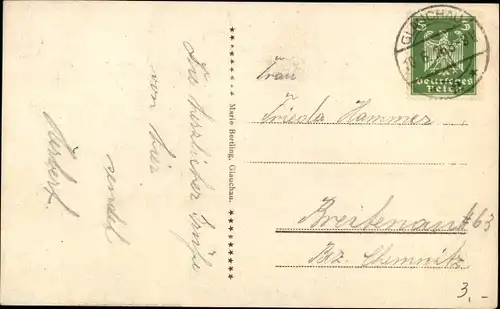 Die herzlichsten Grüße
von hier
sendet
Herbert.
Marie Bertling, Glauchau.
GLAUCHAU
Deutsches
Reich
5
Frau
Frieda Hammer
Breitenau #63
Bez. Chemnitz
3,-